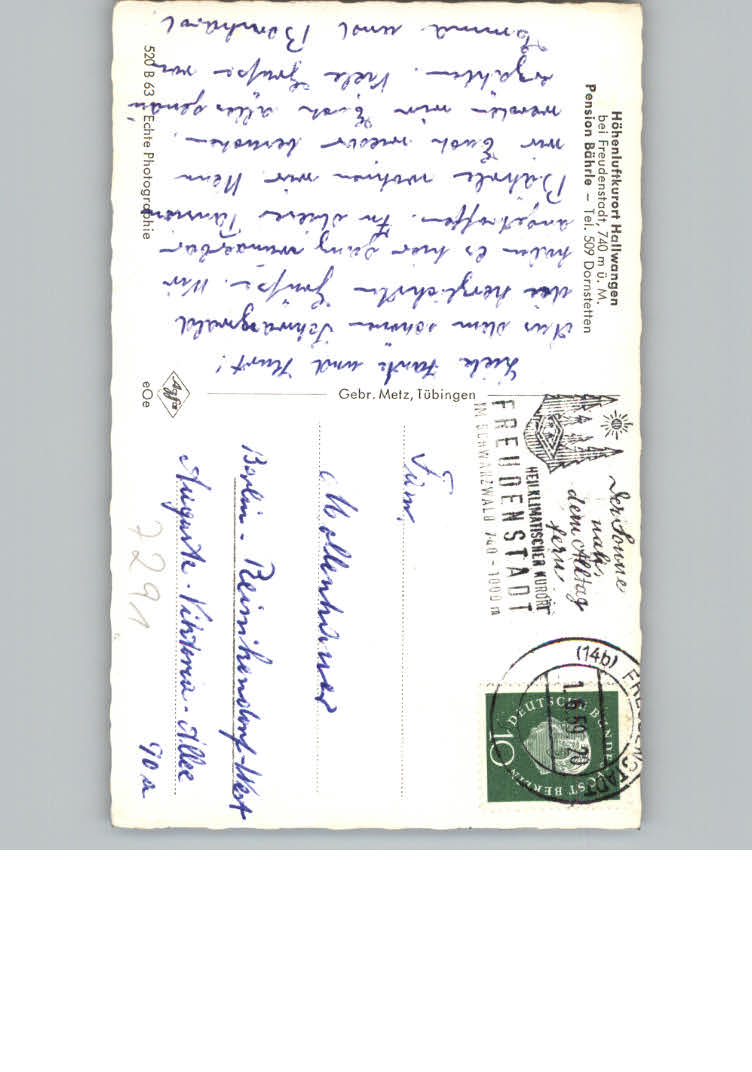 Höhenluftkurort Hallwangen
bei Freudenstadt, 740 m ü. M.
Pension Bährle – Tel. 509 Dornstetten
Liebe Tante und Kurt!
Aus dem schönen Schwarzwald
die herzlichsten Grüße. Wir
haben es hier ganz wunderbar
angetroffen. In dieser Pension
Bährle wohnen wir. Wenn
wir Euch wieder besuchen,
werden wir Euch alles genau
erzählen. Viele Grüße von
und
520 B 63 Echte Photographie
Gebr. Metz, Tübingen
Agfa
eOe
Der Sonne
nah,
dem Alltag
fern
HEILKLIMATISCHER KURORT
FREUDENSTADT
IM SCHWARZWALD 740-1000 m
(14b) FREUDENSTADT
1.6.59.-20
DEUTSCHE BUNDESPOST BERLIN
10
Fam.
Mollenhauer
Berlin-Reinickendorf-West
Auguste-Viktoria-Allee
90a
7291